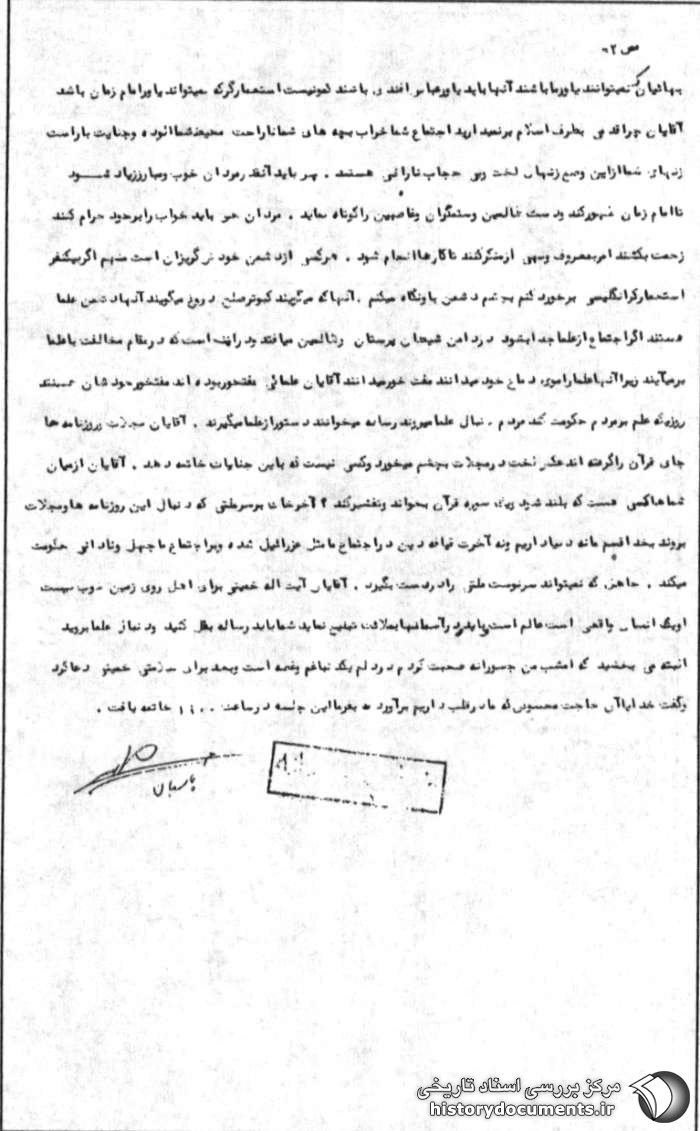 ص ۲
بهائیان نمیتوانند یاور ما باشند آنها باید یاور عباس افندی باشند کمونیست استعمارگر که نمیتواند یاور امام زمان باشد
آقایان چرا قدمی بطرف اسلام برنمیدارید اجتماع شما خراب بچه های شما ناراحت محیط شما آلوده و جنایت بار است
زنهای شما از این وضع زنهای لخت و بی حجاب ناراضی هستند . پس باید آنقدر مردان خوب و مبارز زیاد شـــود
تا امام زمان ظهور کند و دست ظالمین و ستمگران و غاصبین را کوتاه نماید . مردان حق باید خواب را بر خود حرام کنند
زحمت بکشند امر بمعروف و نهی از منکر کنند تا کارها انجام شود . هر کس از دشمن خود در گریزان است منهم اگر بیکنفر
استعمارگر انگلیسی برخورد کنم بچشم دشمن باو نگاه میکنم . آنها که میگویند کبوتر صلح دروغ میگویند آنها دشمن علما
هستند اگر اجتماع از علما جدا بشود در دامن شیطان پرستان و ظالمین میافتد و در است که در مقام مخالفت با علما
برمیآیند زیرا آنها علما را موی دماغ خود میدانند مفت خور میدانند آقایان علمائی مفتخور بوده اند مفتخور خودشان هستند
روزیکه علم بر مردم حکومت کند مردم دنبال علما میروند رساله میخوانند دستور از علما میگیرند . آقایان مجلات و روزنامه ها
جای قرآن را گرفته اند عکس لخت در مجلات بچشم میخورد و کسی نیست که باین جنایات خاتمه دهد . آقایان از میان
شماها کسی هست که بلند شود و یک سوره قرآن بخواند و تفسیر کند ؟ آخر خاک بر سر ملتی که دنبال این روزنامه ها و مجلات
بروند بخدا قسم ما نه دنیا داریم و نه آخرت قیافه دین در اجتماع ما مثل عزرائیل شده و بر اجتماع ما جهل و نادانی حکومت
میکند . جاهل که نمیتواند سرنوشت ملتی را در دست بگیرد . آقایان آیت اله خمینی برای اهل روی زمین خوب نیست
او یک انسان واقعی است عالم است باید در آسمانها بملائک تبلیغ نماید شما باید رساله بغل کنید و دنبال علما بروید
البته می بخشید که امشب من جسورانه صحبت کردم در دلم یک دنیا غم و غصه است و بعد برای سلامتی خمینی دعا کرد
و گفت خدایا آن حاجت مخصوص که ما در قلب داریم برآورده بفرما این جلسه در ساعت خاتمه یافت .
پاسبان
مرکز بررسی اسناد تاریخی
historydocuments.ir